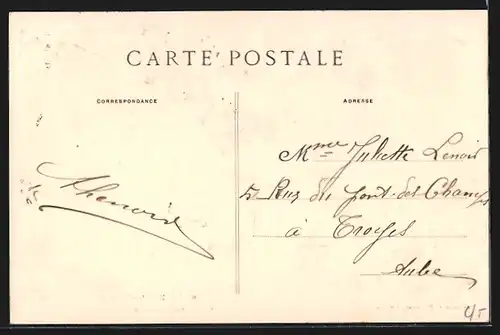 CARTE POSTALE
CORRESPONDANCE
ADRESSE
Mme Juliette Lenoir
5 Rue du pont des Champs
à Troyes
Aube